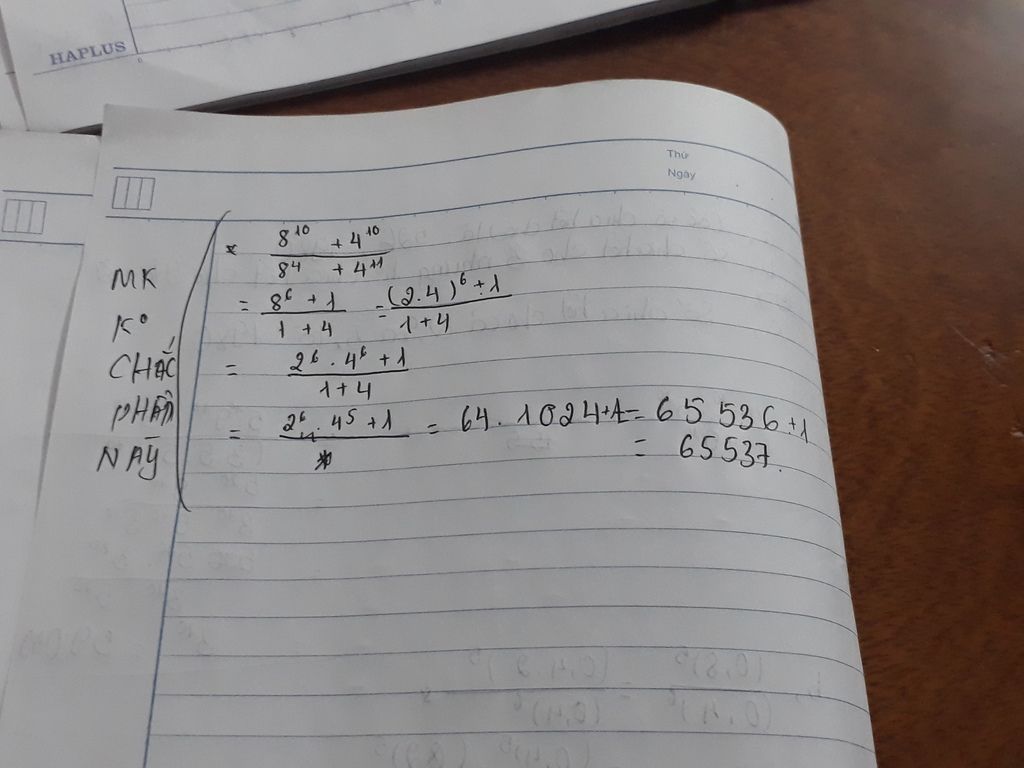 HAPLUS
Thứ
Ngày
* 8^10 + 4^10 / 8^4 + 4^11
= 8^6 + 1 / 1 + 4 = (2.4)^6 + 1 / 1 + 4
= 2^6 . 4^6 + 1 / 1 + 4
= 2^6 . 4^5 + 1 = 64. 1024+1 = 65 536 +1
= 65537.
MK
K°
CHẮC
PHẦN
NAỲ